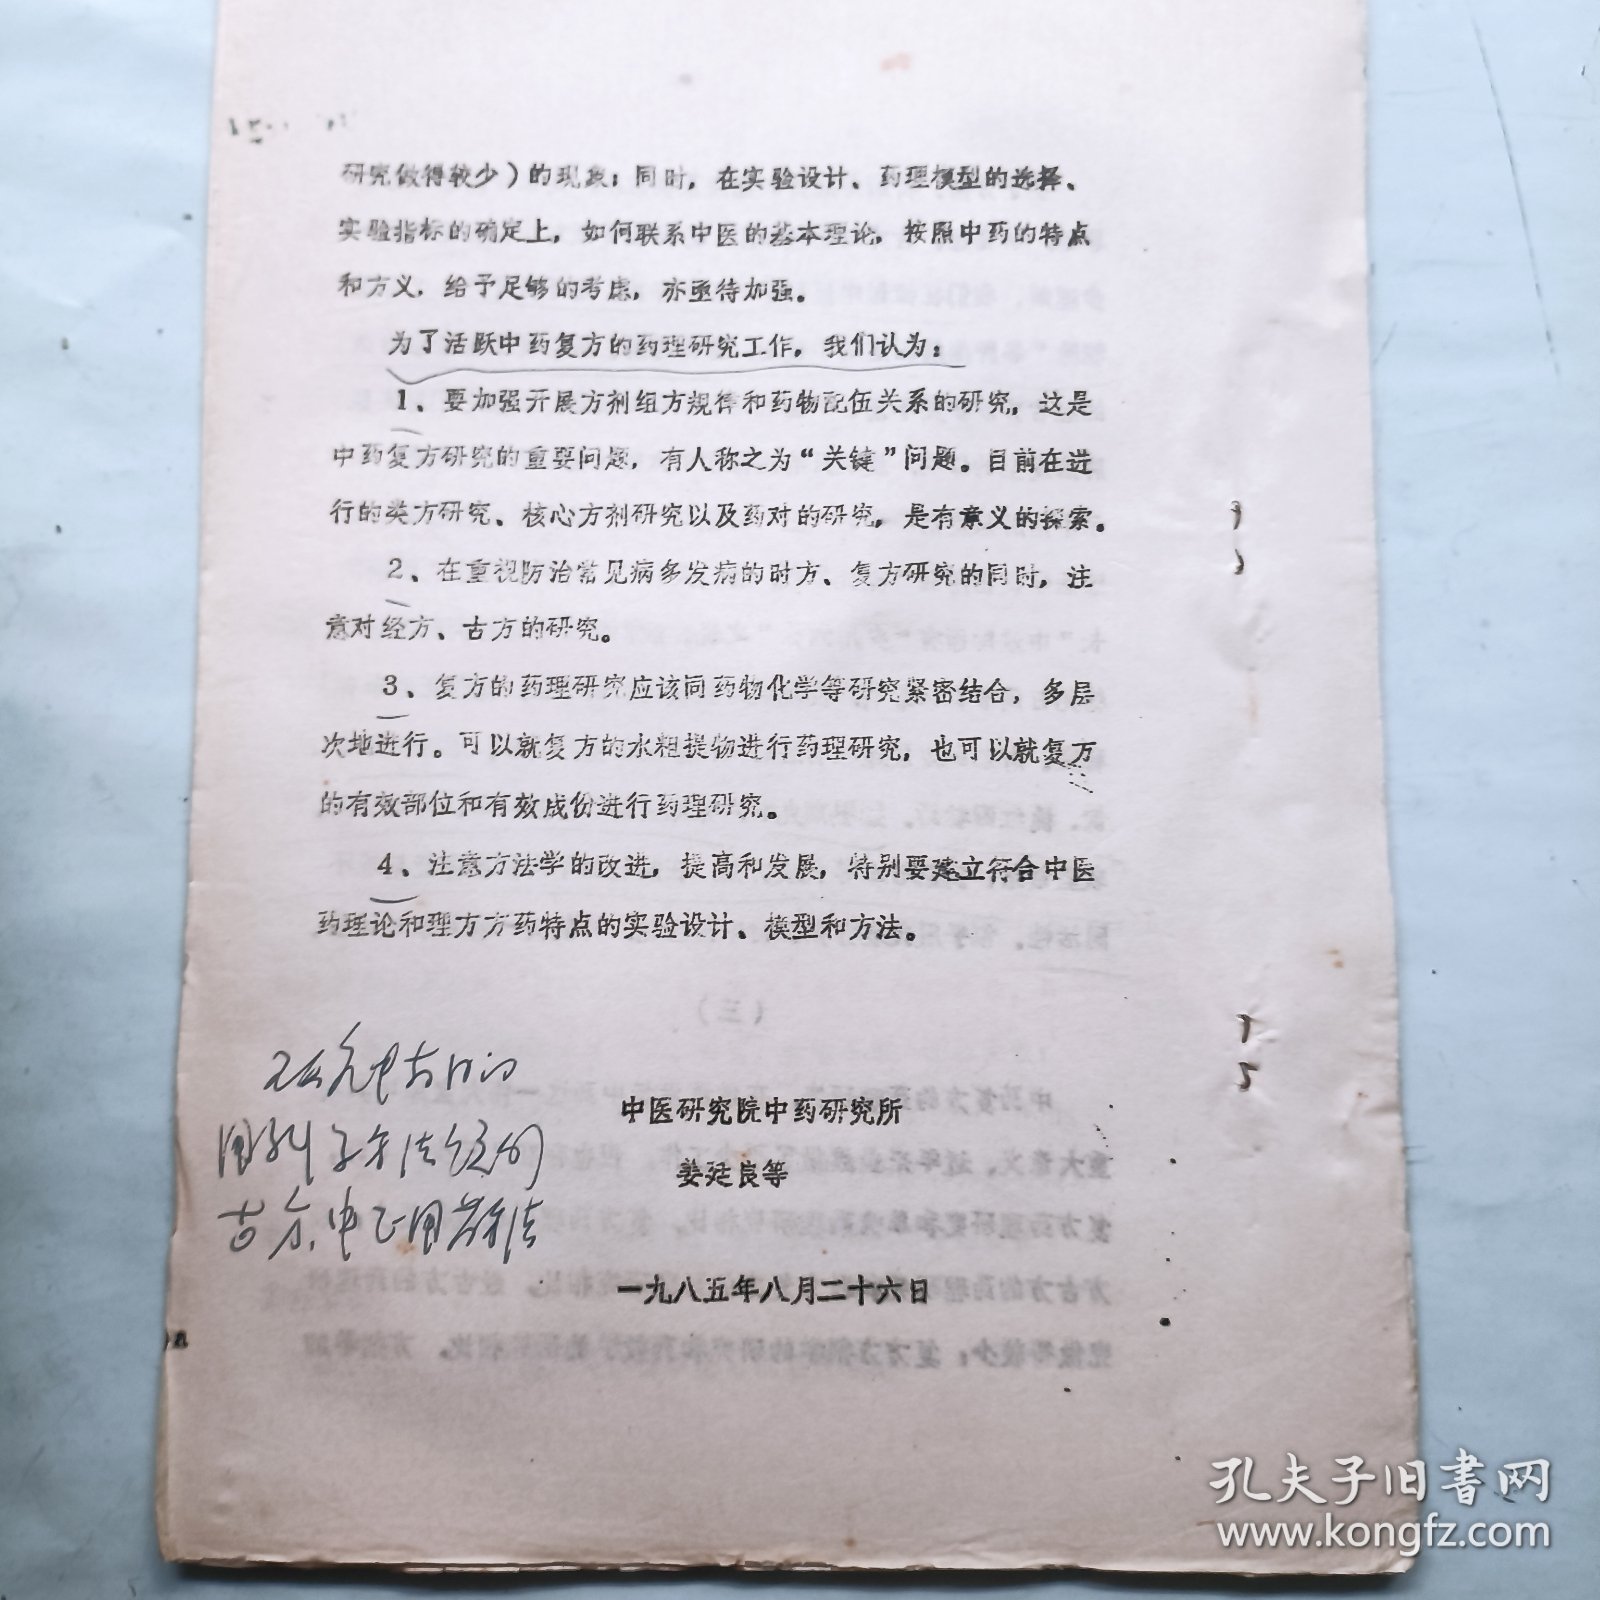 研究做得较少）的现象；同时，在实验设计、药理模型的选择、
实验指标的确定上，如何联系中医的基本理论，按照中药的特点
和方义，给予足够的考虑，亦亟待加强。
为了活跃中药复方的药理研究工作，我们认为：
1、要加强开展方剂组方规律和药物配伍关系的研究，这是
中药复方研究的重要问题，有人称之为“关键”问题。目前在进
行的类方研究、核心方剂研究以及药对的研究，是有意义的探索。
2、在重视防治常见病多发病的时方、复方研究的同时，注
意对经方、古方的研究。
3、复方的药理研究应该同药物化学等研究紧密结合，多层
次地进行。可以就复方的水粗提物进行药理研究，也可以就复方
的有效部位和有效成份进行药理研究。
4、注意方法学的改进，提高和发展，特别要建立符合中医
药理论和理方方药特点的实验设计、模型和方法。
中医研究院中药研究所
姜廷良等
一九八五年八月二十六日
孔夫子旧书网
www.kongfz.com